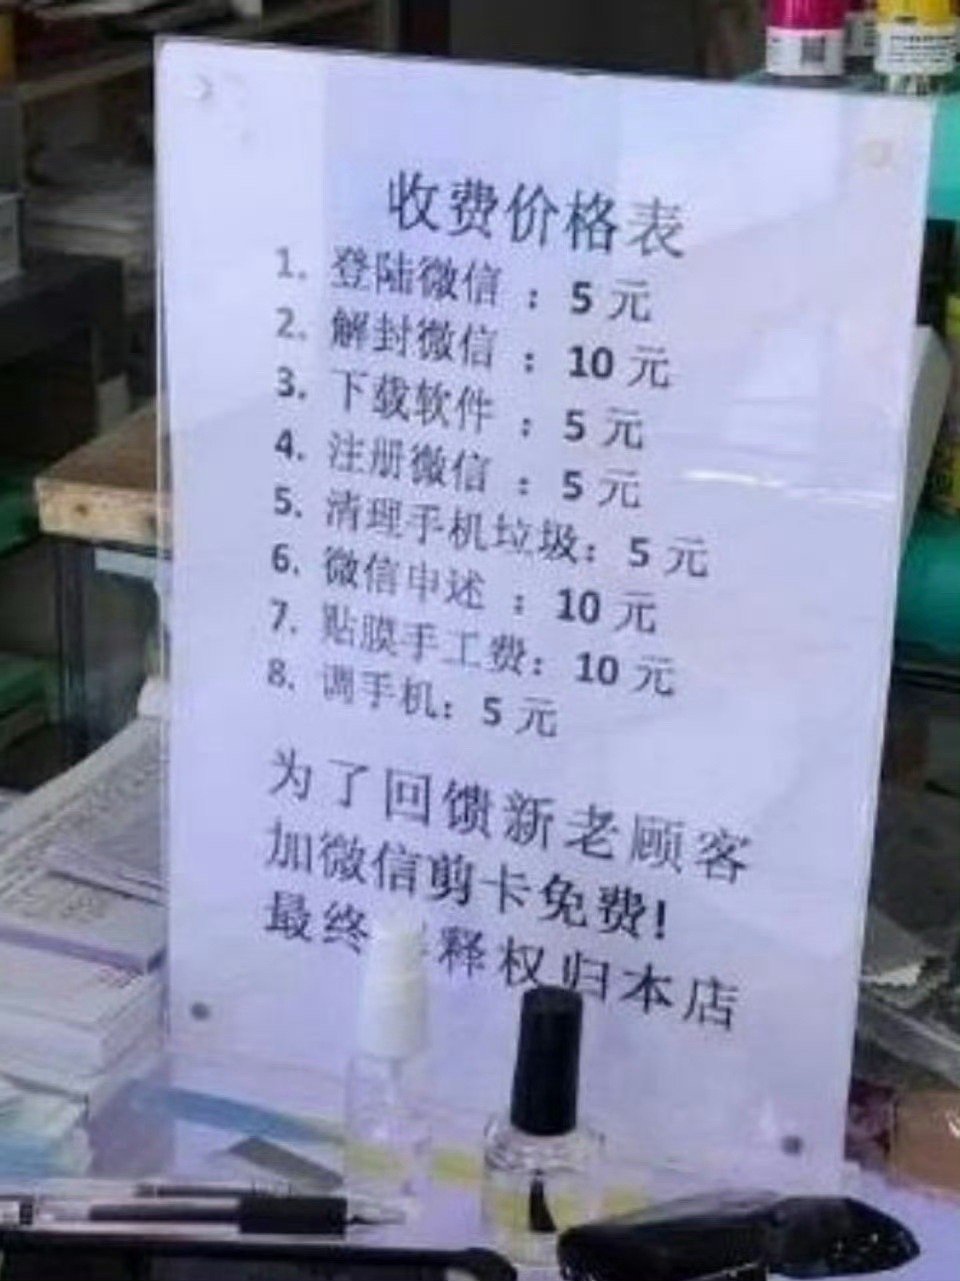 收费价格表
1. 登陆微信 : 5 元
2. 解封微信 : 10 元
3. 下载软件 : 5 元
4. 注册微信 : 5 元
5. 清理手机垃圾: 5 元
6. 微信申述 : 10 元
7. 贴膜手工费: 10 元
8. 调手机: 5 元
为了回馈新老顾客
加微信剪卡免费!
最终 释权归本店